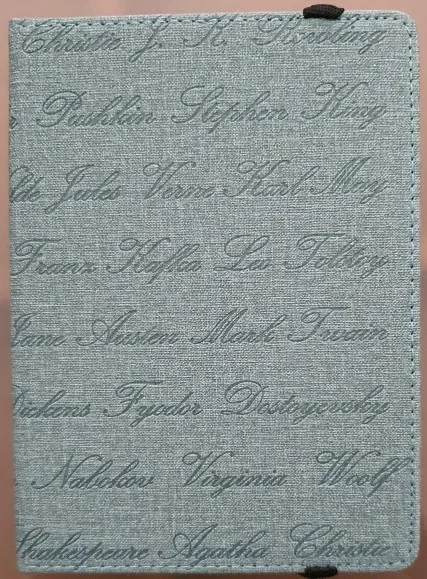 Christie J. K. Rowling
r Pushkin Stephen King
lde Jules Verne Karl May
Franz Kafka Leo Tolstoy
Jane Austen Mark Twain
Dickens Fyodor Dostoyevsky
Nabokov Virginia Woolf
Shakespeare Agatha Christie